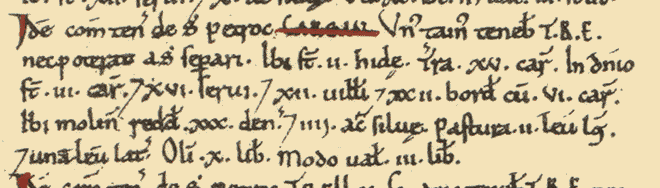 Idē com̄ ten̄ de S̄ petroc. Vn' tain' teneb̄ T.R.E.
nec poterat a S̄ separi. Ibi st̄ .ii. hidę. Tr̄a .xv. car̄. In dn̄io
st̄ .iii. car̄. ⁊ xvi. serui. ⁊ xii. uilłi ⁊ xxii. bord̄ cū .vi. car̄.
Ibi molin̄ redd̄ .xxx. den̄. ⁊ iiii. ac̄ siluę. Pastura .ii. leū lḡ.
⁊ unā leū lat̄. Oli' .x. lib̄. modo uał .iii. lib̄.